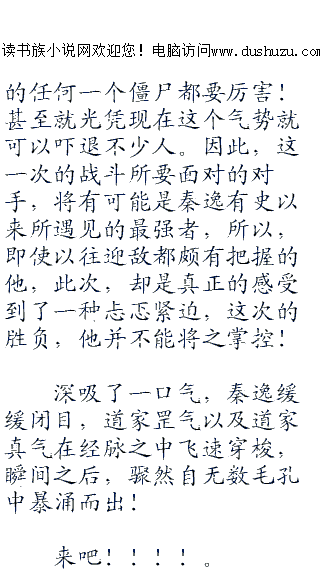 读书族小说网欢迎您！电脑访问www.dushuzu.com
的任何一个僵尸都要厉害！
甚至就光凭现在这个气势就
可以吓退不少人。因此，这
一次的战斗所要面对的对
手，将有可能是秦逸有史以
来所遇见的最强者，所以，
即使以往迎敌都颇有把握的
他，此次，却是真正的感受
到了一种忐忑紧迫，这次的
胜负，他并不能将之掌控！
深吸了一口气，秦逸缓
缓闭目，道家罡气以及道家
真气在经脉之中飞速穿梭，
瞬间之后，骤然自无数毛孔
中暴涌而出！
来吧！！！！。